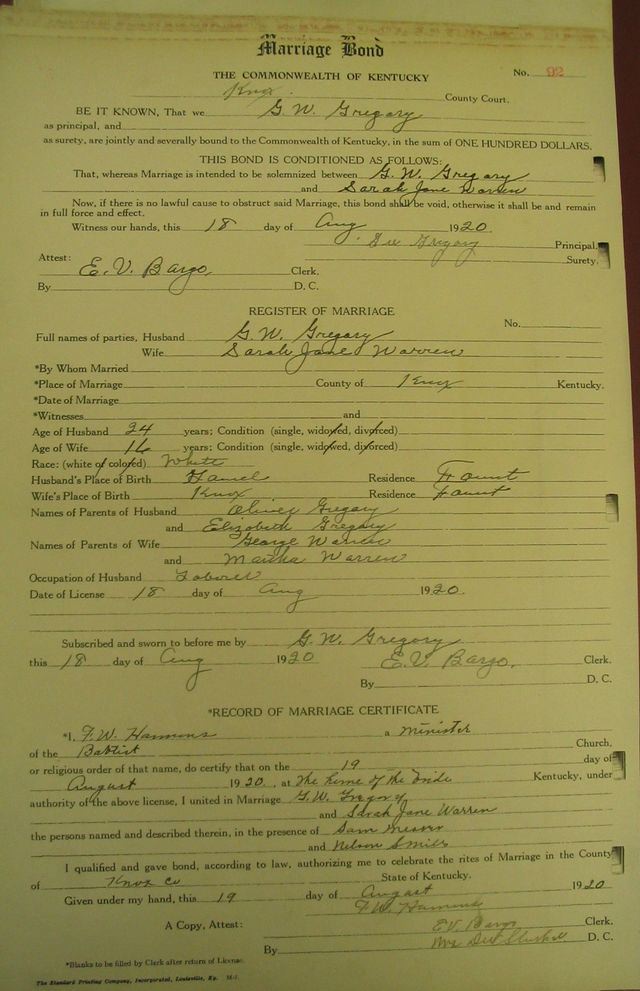 Marriage Bond
THE COMMONWEALTH OF KENTUCKY
No. 92
Knox County Court.
BE IT KNOWN, That we G. W. Gregory
as principal, and
as surety, are jointly and severally bound to the Commonwealth of Kentucky, in the sum of ONE HUNDRED DOLLARS.
THIS BOND IS CONDITIONED AS FOLLOWS:
That, whereas Marriage is intended to be solemnized between G. W. Gregory
and Sarah Jane Warren
Now, if there is no lawful cause to obstruct said Marriage, this bond shall be void, otherwise it shall be and remain
in full force and effect.
Witness our hands, this 18 day of Aug 1920.
Gregory Principal.
Surety.
Attest: E. V. Bargo, Clerk.
By D. C.
REGISTER OF MARRIAGE
No.
Full names of parties, Husband G. W. Gregory
Wife Sarah Jane Warren
*By Whom Married
*Place of Marriage County of Knox Kentucky.
*Date of Marriage
*Witnesses and
Age of Husband 24 years; Condition (single, widowed, divorced)
Age of Wife 16 years; Condition (single, widowed, divorced)
Race: (white or colored) White
Husband's Place of Birth Residence Fount
Wife's Place of Birth Knox Residence Fount
Names of Parents of Husband Oliver Gregory
and Elizabeth Gregory
Names of Parents of Wife George Warren
and Martha Warren
Occupation of Husband
Date of License 18 day of Aug 1920.
Subscribed and sworn to before me by G. W. Gregory
this 18 day of Aug 1920 E. V. Bargo, Clerk.
By D. C.
*RECORD OF MARRIAGE CERTIFICATE
*I, F. W. Hammons a minister
of the Baptist Church,
or religious order of that name, do certify that on the 19 day of
August 1920, at the home of the bride Kentucky, under
authority of the above license, I united in Marriage G. W. Gregory
and Sarah Jane Warren
the persons named and described therein, in the presence of Sam
and Nelson Smith
I qualified and gave bond, according to law, authorizing me to celebrate the rites of Marriage in the County
of Knox Co State of Kentucky.
Given under my hand, this 19 day of August 1920
F. W. Hammons
A Copy, Attest: E. V. Bargo Clerk.
By D. C.
*Blanks to be filled by Clerk after return of License.
The Standard Printing Company, Incorporated, Louisville, Ky.